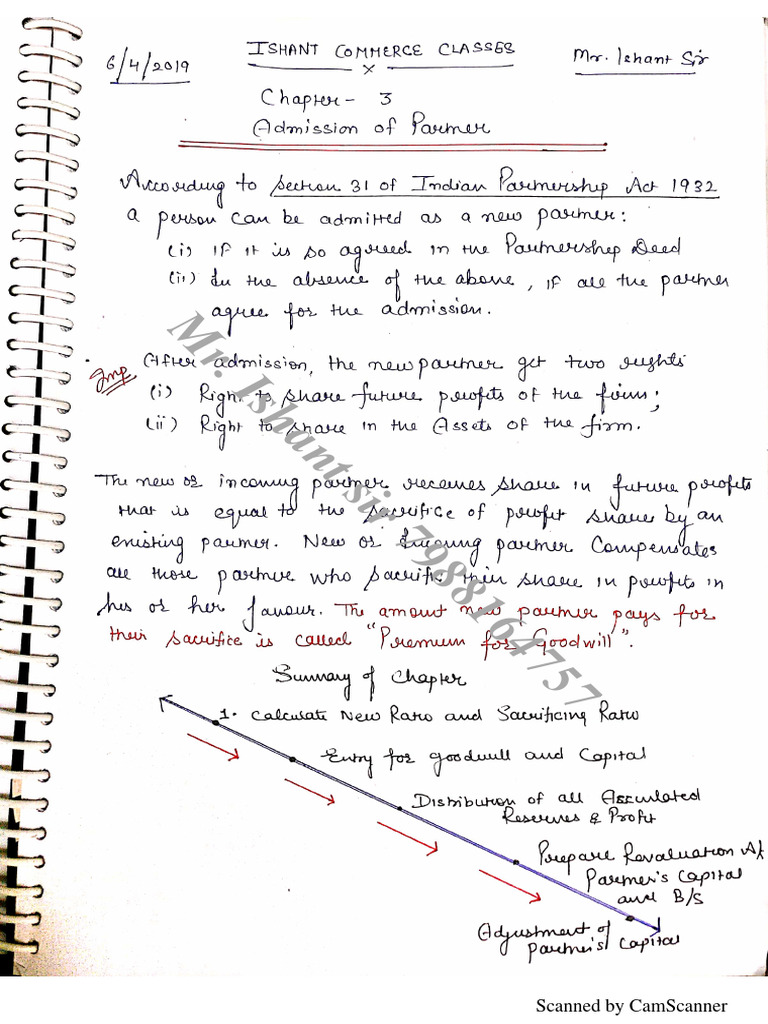 6/4/2019
ISHANT COMMERCE CLASSES
Mr. Ishant Sir
x
Chapter- 3
Admission of Partner
According to Section 31 of Indian Partnership Act 1932
a person can be admitted as a new partner:
(i) If it is so agreed in the Partnership Deed
(ii) In the absence of the above, if all the partner
agree for the admission.
Imp
After admission, the new partner get two rights
(i) Right to share future profits of the firm;
(ii) Right to share in the Assets of the firm.
The new or incoming partner receives share in future profits
that is equal to the sacrifice of profit share by an
existing partner. New or Incoming partner Compensates
all those partner who sacrific their share in profits in
his or her favour. The amount new partner pays for
their sacrifice is called "Premium for Goodwill".
Summary of Chapter
1. Calculate New Ratio and Sacrificing Ratio
Entry for goodwill and Capital
Distribution of all Acculated
Reserves & Profit
Prepare Revaluation A/c
Partner's Capital
and B/S
Adjustment of
partner's Capital
Mr. Ishant sir 7988164757
Scanned by CamScanner